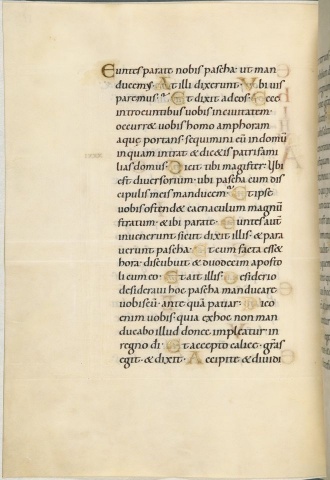 Euntes parate nobis pascha· ut man
ducemus· At illi dixerunt· Vbi uis
paremus· Et dixit ad eos· Ecce
introeuntibus uobis in ciuitatem·
occurr& uobis homo amphoram
aquę portans· sequimini eū in domū
in quam intrat· & dic&is patrifami
lias domus· Dicit tibi magister· Ubi
est diuersorium· ubi pascha cum dis
cipulis meis manducem· Et ipse
uobis ostend& caenaculum magnū
stratum· & ibi parate· Euntes aut
inuenerunt sicut dixit illis· & para
uerunt pascha· Et cum facta ess&
hora· discubuit & duodecim aposto
li cum eo· Et ait illis· Desiderio
desideraui hoc pascha manducare
uobiscū· ante quā patiar· Dico
enim uobis· quia ex hoc non man
ducabo illud donec impleatur in
regno di· Et accepto calice· gras
egit· & dixit· Accipite & diuidi